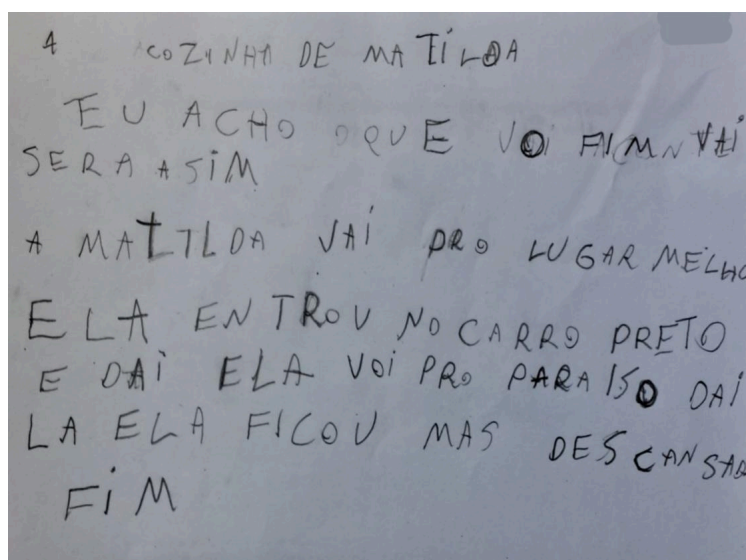 A COZINHA DE MATILDA
EU ACHO OQUE VOI FICMN VAI
SERA ASIM
A MATILDA VAI PRO LUGAR MELHO
ELA ENTROU NO CARRO PRETO
E DAI ELA VOI PRO PARAISO DAI
LA ELA FICOU MAS DESCANSAD
FIM